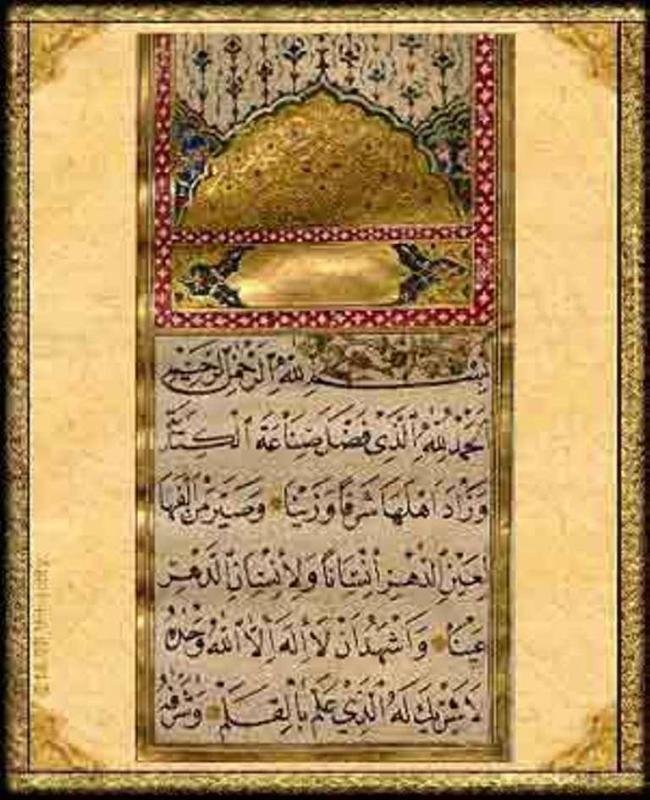 بِسْمِ اللهِ الرَّحْمٰنِ الرَّحِيْمِ
اَلْحَمْدُ لِلّٰهِ الَّذِى فَضَّلَ صِنَاعَةَ الْكِتَابَةِ
وَزَادَ اَهْلَهَا شَرَفًا وَزَيْنًا وَصَيَّرَ مِنْ اَلِفِهَا
لِعَيْنِ الدَّهْرِ اِنْسَانًا وَلِاِنْسَانِ الدَّهْرِ
عَيْنًا وَاَشْهَدُ اَنْ لَا اِلٰهَ اِلَّا اللهُ وَحْدَهُ
لَا شَرِيْكَ لَهُ الَّذِيْ عَلَّمَ بِالْقَلَمْ وَشَرَّفَهُ